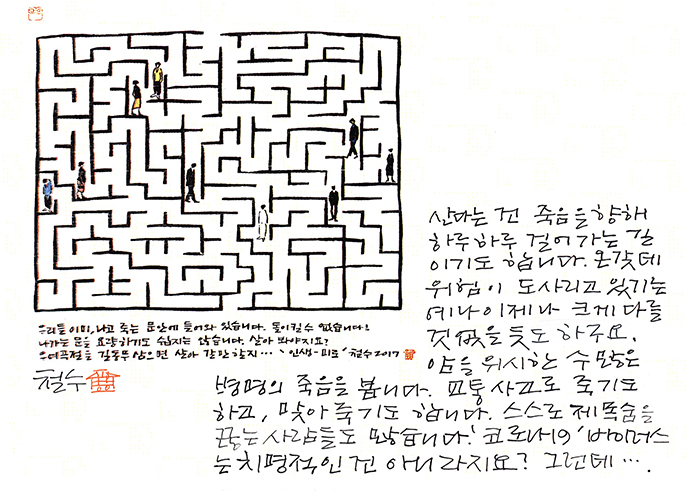 우리들 이미, 나고 죽는 문안에 들어와 있습니다. 돌이킬 수 없습니다!
나가는 문을 요량하기도 쉽지는 않습니다. 살아 봐야지요?
우여곡절을 길동무 삼으면 살아 갈만 할지… '인생-미로' 철수 2017
철수
산다는 건 죽음을 향해
하루하루 걸어가는 길
이기도 합니다. 온갖데
위험이 도사리고 있기는
예나 이제나 크게 다를
것 없을 듯도 하구요.
암을 위시한 수많은
병명의 죽음을 봅니다. 교통사고로 죽기도
하고, 맞아 죽기도 합니다. 스스로 제 목숨을
끊는 사람들도 많습니다. '코로나19' 바이러스
는 치명적인 건 아니라지요? 그런데….